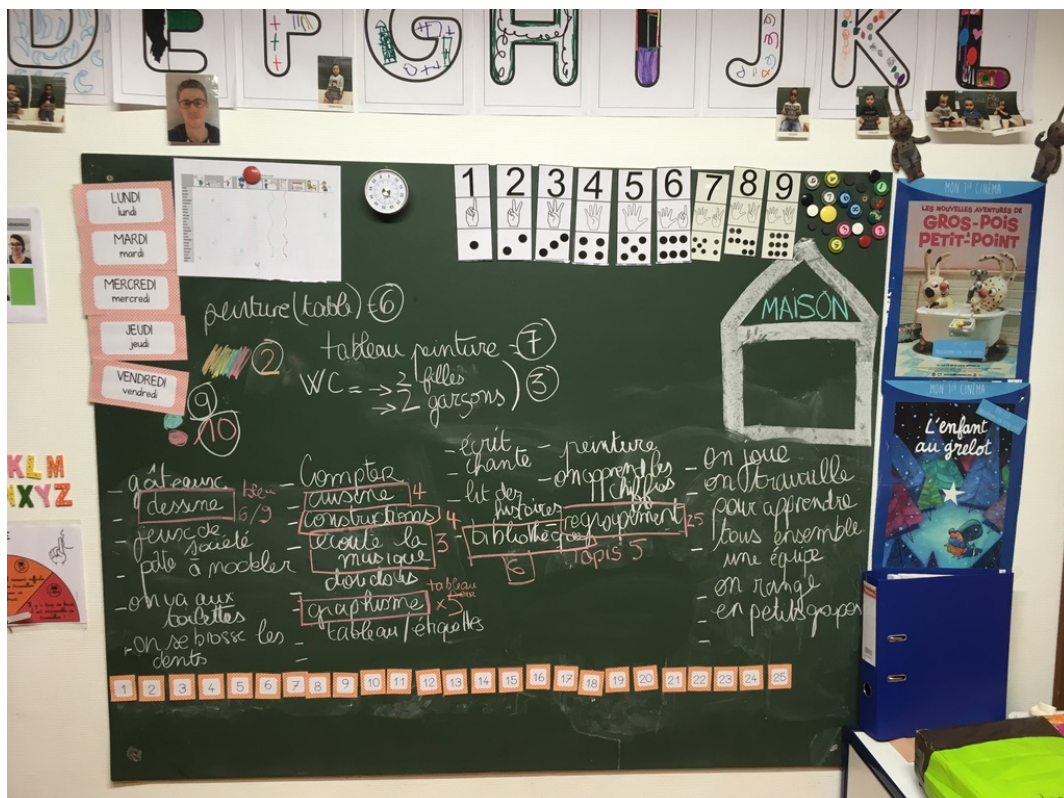 D E F G H I J K L
LUNDI
lundi
MARDI
mardi
MERCREDI
mercredi
JEUDI
jeudi
VENDREDI
vendredi
1 2 3 4 5 6 7 8 9
MON 1er CINÉMA
LES NOUVELLES AVENTURES DE
GROS-POIS
PETIT-POINT
MON 1er CINÉMA
L'enfant
au grelot
MAISON
peinture (table) = 6
2
tableau peinture = 7
WC = → 2 filles
→ 2 garçons) 3
9
10
KLM
XYZ
- gâteaux
- dessine bleu
6/9
- jeux de
société
- pâte à modeler
- on va aux
toilettes
- on se brosse les
dents
- Compter
- cuisine 4
- constructions 4
- écoute la
musique 3
doudous
- graphisme tableau
×3
tableau/étiquettes
-
- écrit
- chante
- lit des
histoires
- bibliothèque
6
- peinture
- on apprend les
chiffres
regroupement 25
tapis 5
- on joue
- on travaille
pour apprendre
- tous ensemble
une équipe
- on range
- en petits groupes
-
1 2 3 4 5 6 7 8 9 10 11 12 13 14 15 16 17 18 19 20 21 22 23 24 25